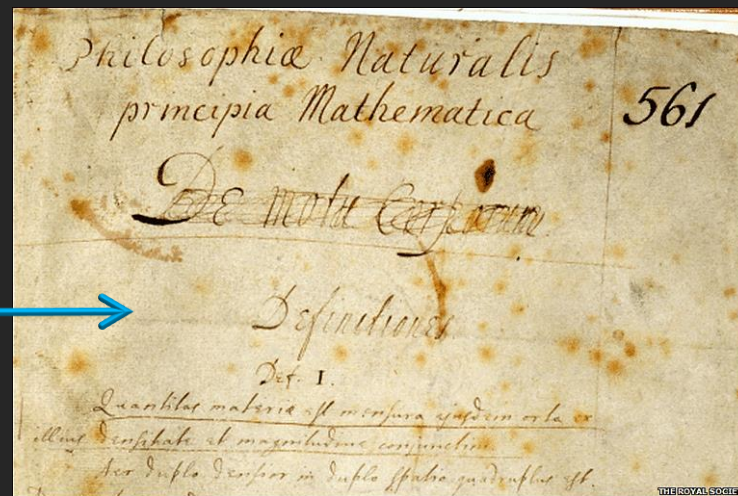 Philosophiæ Naturalis
principia Mathematica
561
De motu Corporum
Definitiones
Def. I.
Quantitas materiæ est mensura ejusdem orta ex
illius densitate et magnitudine conjunctim.
Aer duplo densior in duplo spatio quadruplus est.
THE ROYAL SOCIE